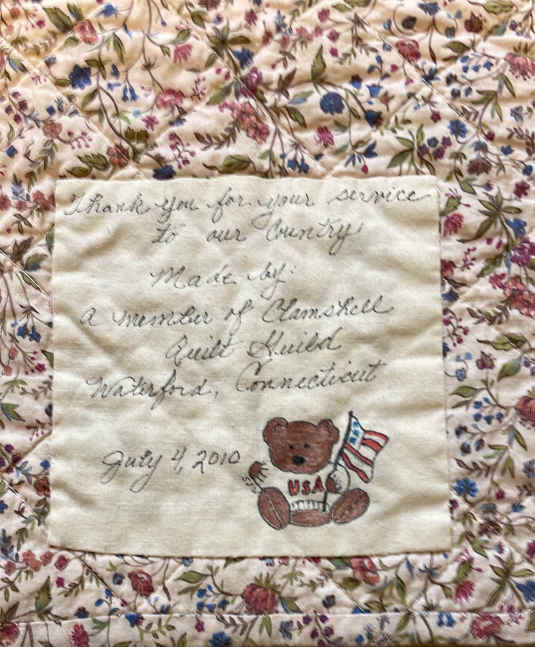 Thank you for your service
to our Country!
Made by:
a member of Clamshell
Quilt Guild
Waterford, Connecticut
July 4, 2010
USA